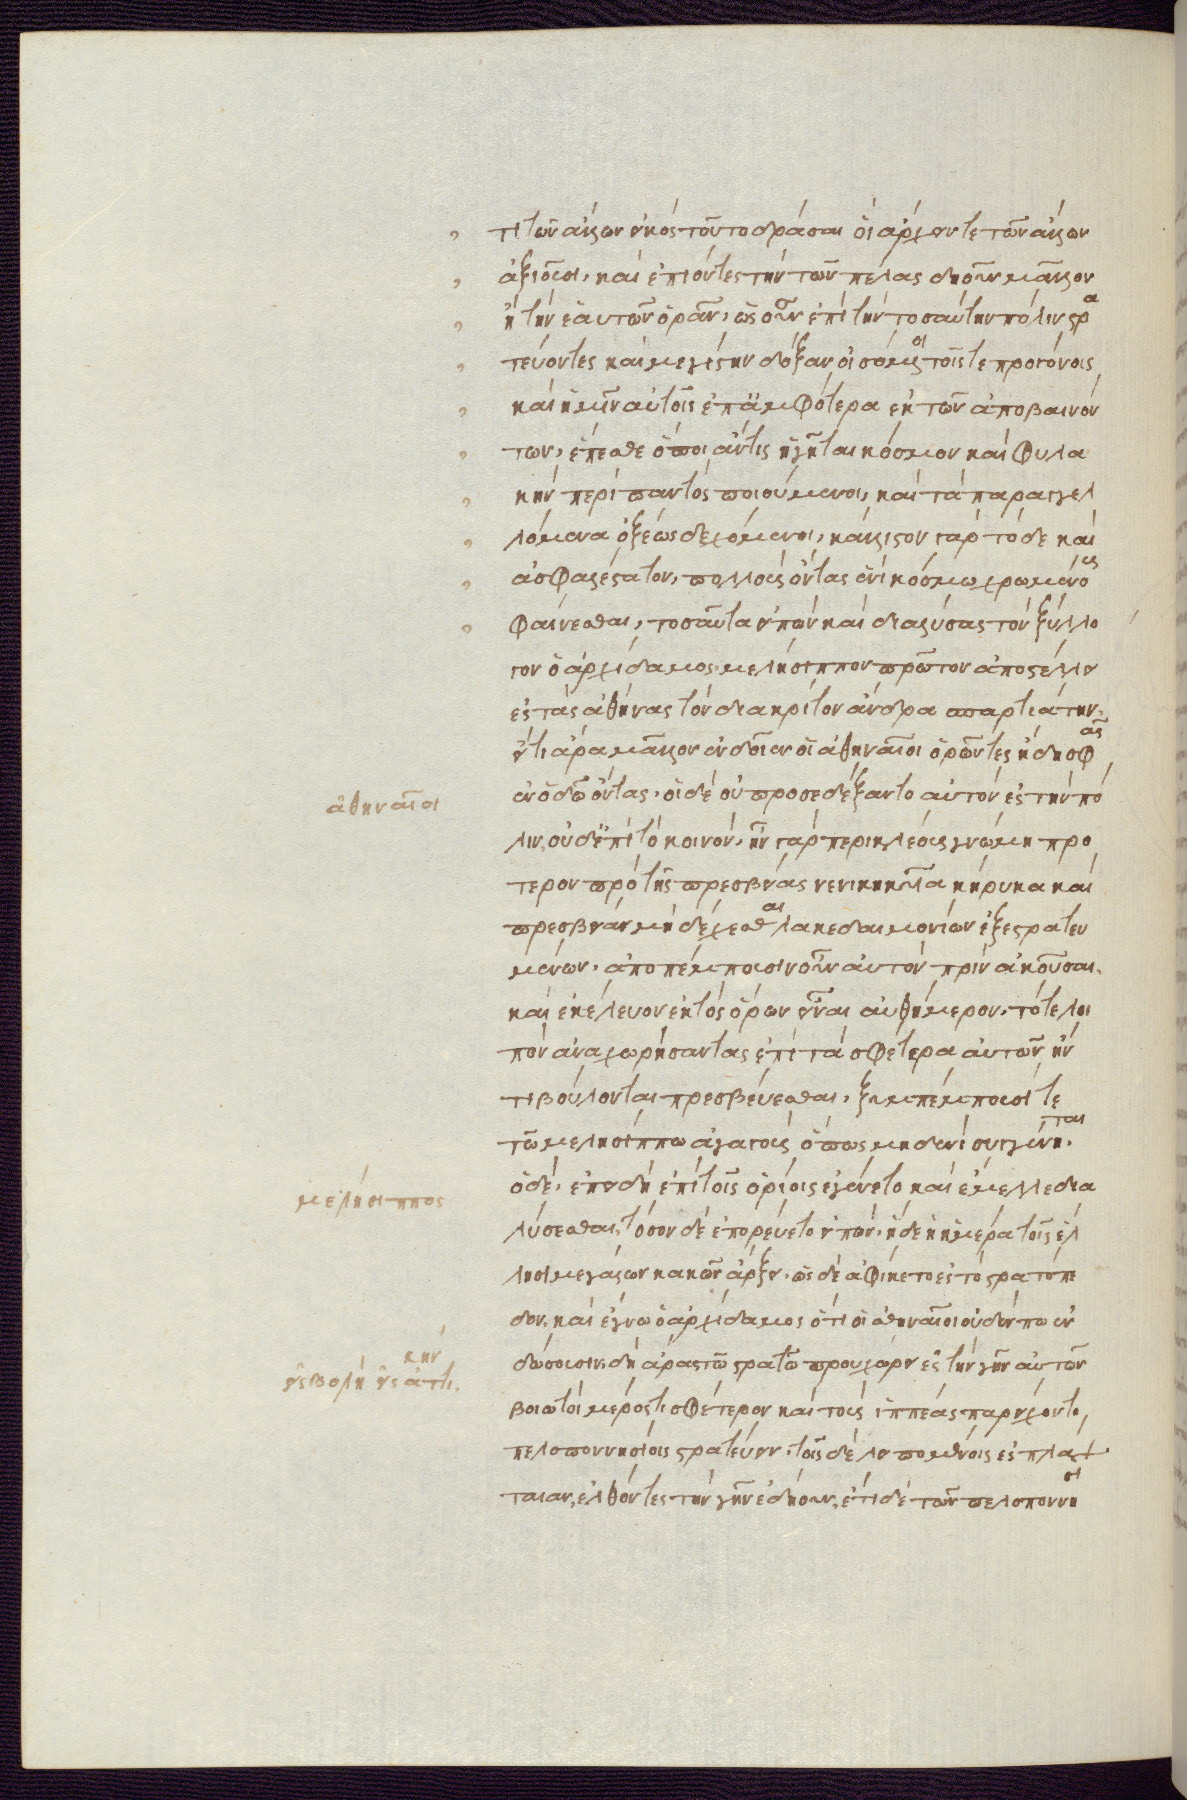 τι τῶν ἄλλων εἰκὸς τοῦτο δρᾶσαι οἳ ἄρχειν τε τῶν ἄλλων
ἀξιοῦσι, καὶ ἐπιόντες τὴν τῶν πέλας δηοῦν μᾶλλον
ἢ τὴν ἑαυτῶν ὁρᾶν, ὡς οὖν ἐπὶ τὴν τοσαύτην πόλιν στρα
τεύοντες καὶ μεγίστην δόξαν οἰσόμενοι τοῖς τε προγόνοις
καὶ ἡμῖν αὐτοῖς ἐπ' ἀμφότερα ἐκ τῶν ἀποβαινόν
των, ἕπεσθε ὅποι ἄν τις ἡγῆται κόσμον καὶ φυλα
κὴν περὶ παντὸς ποιούμενοι, καὶ τὰ παραγγελ
λόμενα ὀξέως δεχόμενοι, κάλλιστον γὰρ τόδε καὶ
ἀσφαλέστατον, πολλοὺς ὄντας ἑνὶ κόσμω χρωμένους
φαίνεσθαι, τοσαῦτα εἰπὼν καὶ διαλύσας τὸν ξύλλο
γον ὁ ἀρχίδαμος, μελήσιππον πρῶτον ἀποστέλλει
ἐς τὰς ἀθήνας τὸν διακρίτον ἄνδρα σπαρτιάτην,
εἴ τι ἄρα μᾶλλον ἐνδοῖεν οἱ ἀθηναῖοι ὁρῶντες ἤδη σφᾶς
ἀθηναῖοι
ἐν ὁδῶ ὄντας, οἱ δὲ οὐ προσεδέξαντο αὐτὸν ἐς τὴν πό
λιν, οὐδ' ἐπὶ τὸ κοινόν, ἦν γὰρ περικλέους γνώμη πρό
τερον πρὸ τῆς πρεσβείας νενικηκυῖα κήρυκα καὶ
πρεσβείαν μὴ δέχεσθαι λακεδαιμονίων ἐξεστρατευ
μένων, ἀποπέμπουσιν οὖν αὐτὸν πρὶν ἀκοῦσαι,
καὶ ἐκέλευον ἐκτὸς ὅρων εἶναι αὐθήμερον, τό τε λοι
πὸν ἀναχωρήσαντας ἐπὶ τὰ σφέτερα αὐτῶν ἤν
τι βούλονται πρεσβεύεσθαι, ξυμπέμπουσί τε
τῶ μελησίππω ἀγωγοὺς ὅπως μηδενὶ συγγένηται.
μελήσιππος
ὁ δὲ, ἐπειδὴ ἐπὶ τοῖς ὁρίοις ἐγένετο καὶ ἔμελλε δια
λύσεσθαι, τόσον δὲ ἐπορεύετο εἰπών, ἥδε ἡ ἡμέρα τοῖς ἕλ
λησι μεγάλων κακῶν ἄρξει, ὡς δὲ ἀφίκετο ἐς τὸ στρατόπε
δον, καὶ ἔγνω ὁ ἀρχίδαμος ὅτι οἱ ἀθηναῖοι οὐδέν πω ἐν
δώσουσιν, δὴ ἄρας τῶ στρατῶ προυχώρει ἐς τὴν γῆν αὐτῶν
εἰσβολὴ εἰς ἀττικήν.
βοιωτοὶ μέρος τι σφέτερον καὶ τοὺς ἱππέας παρείχοντο
πελοποννησίοις στρατεύειν, τοῖς δὲ λειπομένοις ἐς πλά
ταιαν, ἐλθόντες τὴν γῆν ἐδήουν, ἔτι δὲ τῶν πελοποννησί